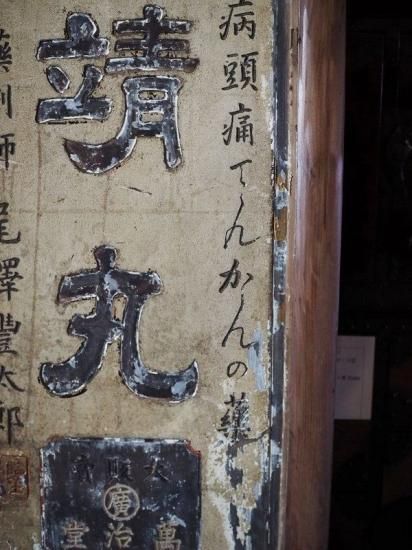 病頭痛てんかんの薬
靖丸
藥剤師 尾澤豐太郎
大販賣
廣
萬治堂